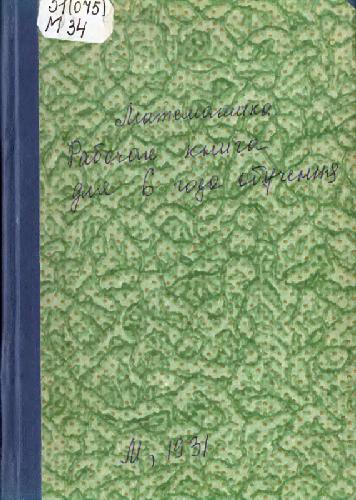 51(075)
М 34
Математика
Рабочая книга
для 6 года обучения
М, 1931